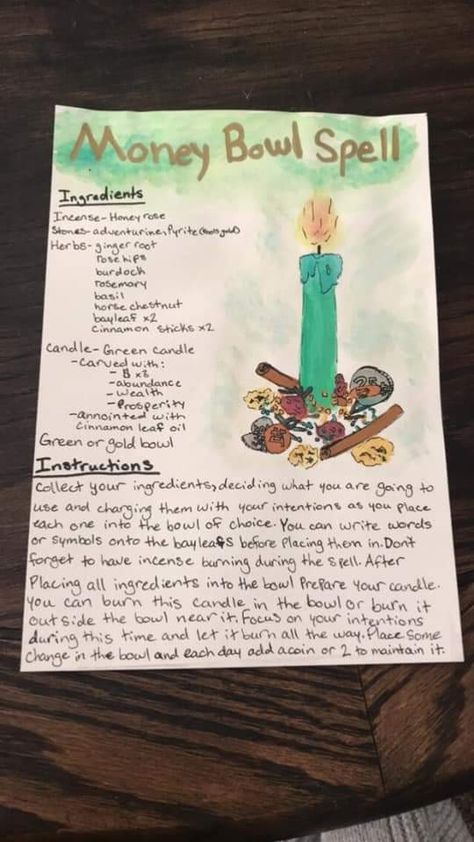 Money Bowl Spell
Ingredients
Incense-Honey rose
Stones-adventurine, Pyrite (fools gold)
Herbs-ginger root
rose hips
burdock
rosemary
basil
horse chestnut
bayleaf x2
cinnamon sticks x2
Candle-Green candle
-carved with:
-$ x3
-abundance
-wealth
-Prosperity
-annointed with
cinnamon leaf oil
Green or gold bowl
Instructions
Collect your ingredients, deciding what you are going to
use and charging them with your intentions as you place
each one into the bowl of choice. You can write words
or symbols onto the bayleafs before Placing them in. Dont
forget to have incense burning during the spell. After
Placing all ingredients into the bowl Prepare your candle.
You can burn this candle in the bowl or burn it
out side the bowl near it. Focus on your intentions
during this time and let it burn all the way. Place some
change in the bowl and each day add a coin or 2 to maintain it.